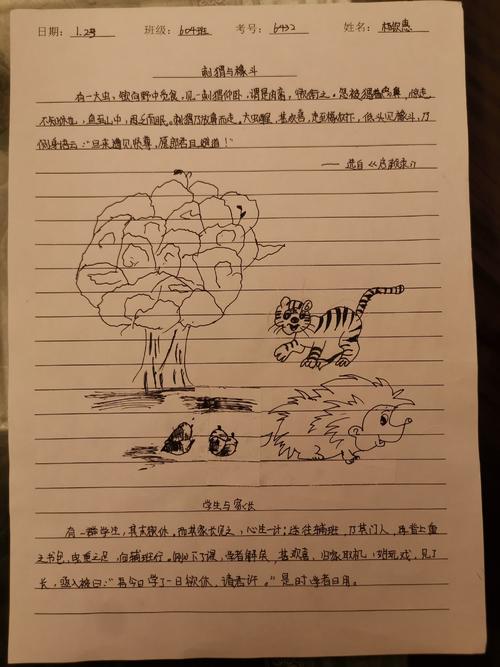 日期: 1.29 班级: 604班 考号: 6432 姓名: 
刺猬与橡斗
有一大虫、欲向野中觅食,见一刺猬仰卧,谓是肉脔,欲衔之。忽被猬卷着鼻,惊走
不知休息,直至山中,困乏而眠。刺猬乃放鼻而走。大虫醒,甚欢喜,走至橡树下,低头见橡斗,乃
侧身语云:“旦来遭见贤尊,愿郎君且避道!”
—— 选自《启颜录》
学生与家长
有一群学生,其末徽休,而其家长见之,心生一计:送往辅班,乃其门人,
之书包,,向辅班行。下了课,学者解矣,甚欢喜,归家取机,玩戏,见了
长,入被曰:“吾今日学了一日欲休,请君许。” 是时学者日月。